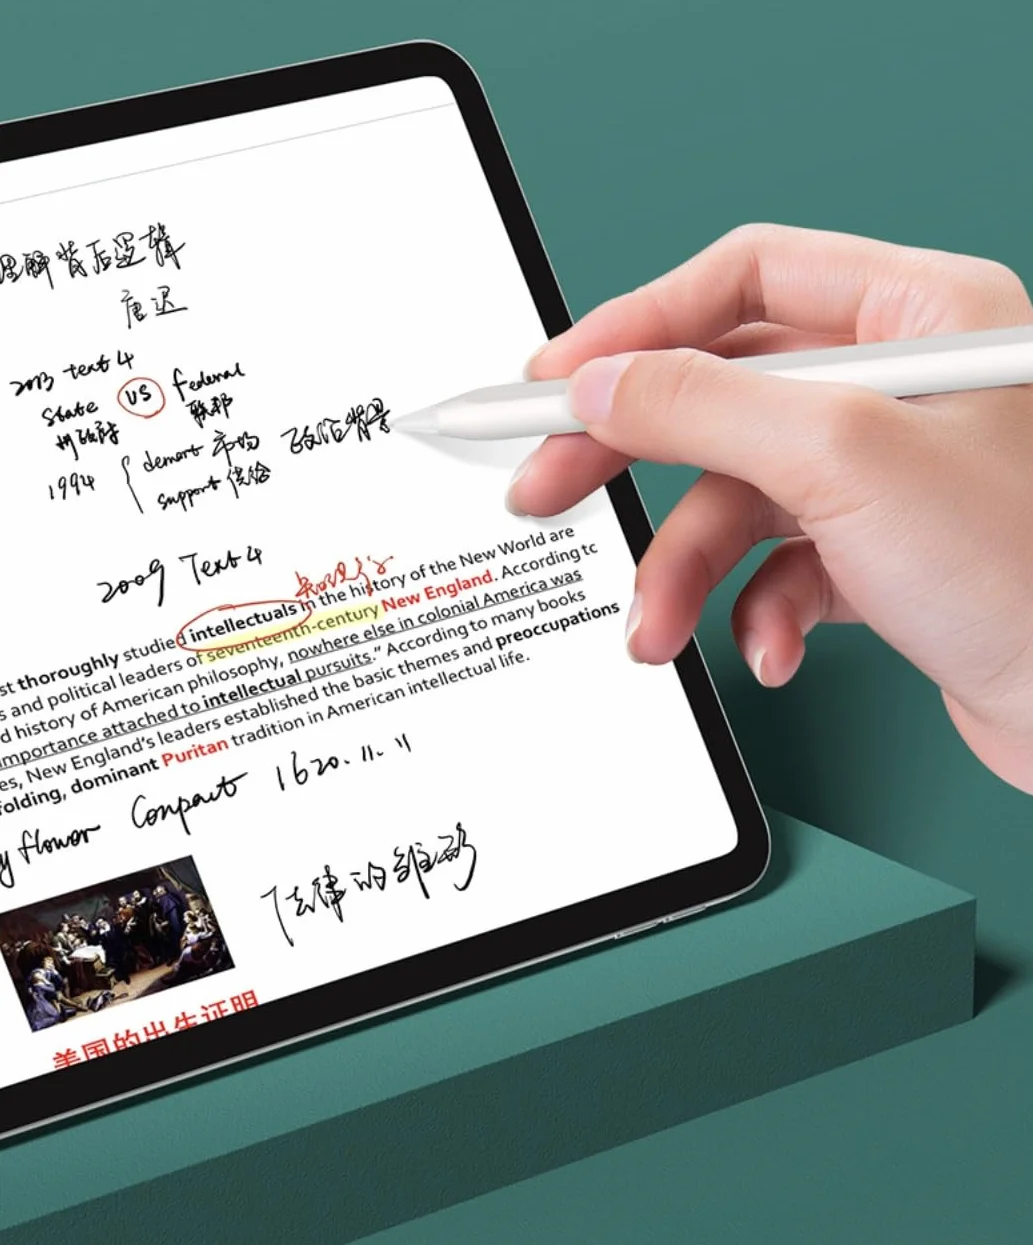 理解背后逻辑
唐迟
2013 text 4
State US federal
州政府 联邦
1994 demant 市场 政治背景
support 供给
2009 Text 4
知识分子
st thoroughly studied intellectuals in the history of the New World are
s and political leaders of seventeenth-century New England. According to
d history of American philosophy, nowhere else in colonial America was
importance attached to intellectual pursuits." According to many books
es, New England's leaders established the basic themes and preoccupations
folding, dominant Puritan tradition in American intellectual life.
y flower Conpact 1620.11.11
法律的雏形
美国的出生证明